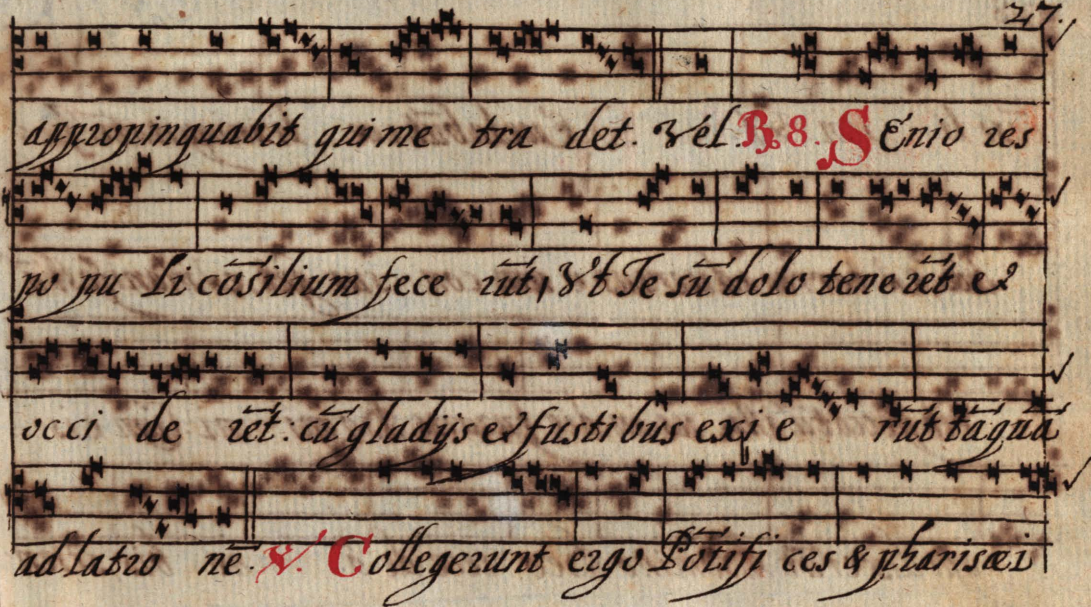 27.
appropinquabit qui me tra det. Vel. ℟. 8. SEnio res
po pu li cōsilium fece rūt, Vt Ie sū dolo tene rēt et
occi de rēt: cū gladijs et fusti bus exi e rūt tāquā
ad latro nē. ℣. Collegerunt ergo Pōtifi ces & pharisæi